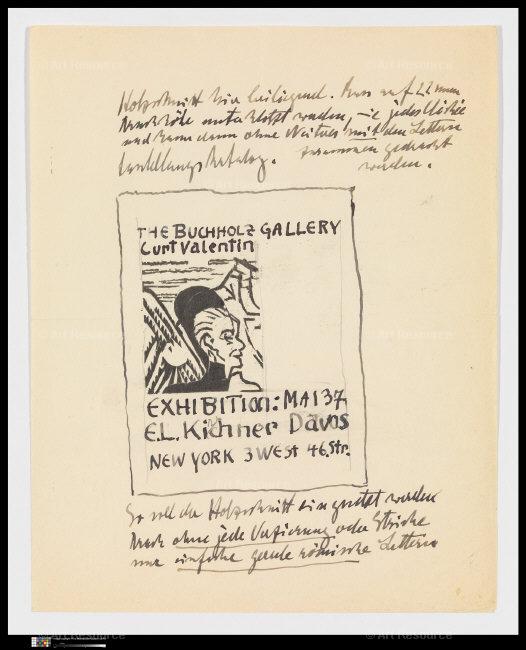 Holzschnitt hier beiliegend. Muss auf 22 mm
Druckhöhe unterklotzt werden, wie jedes Klischee
und kann dann ohne Weitres mit den Lettern
zusammen gedruckt
werden.
THE BUCHHOLZ GALLERY
Curt Valentin
EXHIBITION: MAI 37
E.L. Kirchner Davos
NEW YORK 3 WEST 46. Str.
So soll der Holzschnitt eingesetzt werden
Druck ohne jede Verzierung oder Striche
nur einfache gerade römische Lettern